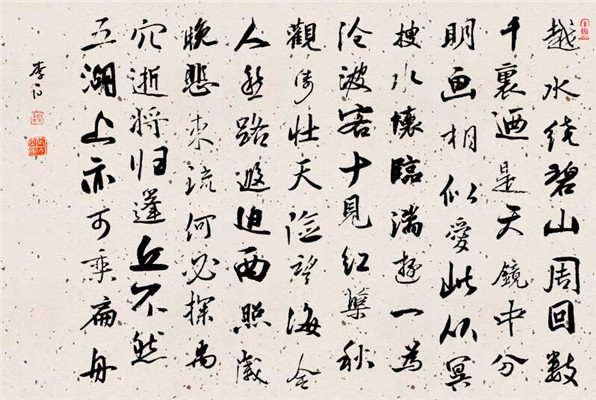 越水绕碧山周回數
千裏迺是天鏡中分
明画相似愛此从冥
搜永懷臨湍遊一為
沧波客十見红蕖秋
觀涛壮天险望海令
人愁路遐迫西照歲
晚悲东流何必探禹
穴逝将归蓬丘不然
五湖上亦可乘扁舟
李白